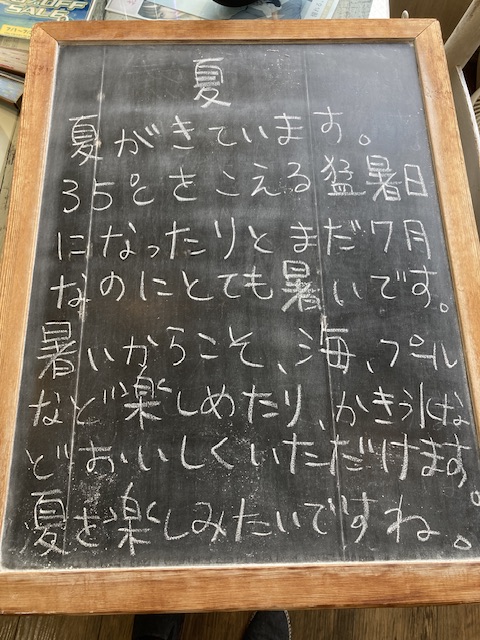 SALE
夏
夏がきています。
35℃をこえる猛暑日
になったりとまだ7月
なのにとても暑いです。
暑いからこそ、海、プール
など楽しめたり、かき氷な
どおいしくいただけます。
夏を楽しみたいですね。